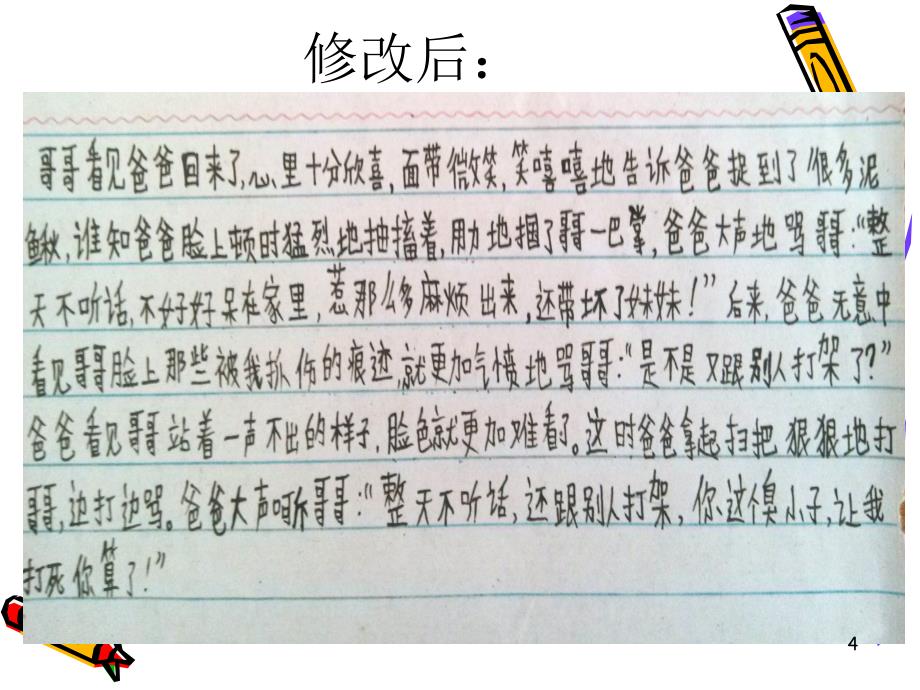 修改后：
哥哥看见爸爸回来了，心里十分欣喜，面带微笑，笑嘻嘻地告诉爸爸捉到了很多泥
鳅，谁知爸爸脸上顿时猛烈地抽搐着，用力地掴了哥一巴掌，爸爸大声地骂哥：“整
天不听话，不好好呆在家里，惹那么多麻烦出来，还带坏了妹妹！”后来，爸爸无意中
看见哥哥脸上那些被我扒伤的痕迹，就更加气愤地骂哥哥：“是不是又跟别人打架了？”
爸爸看见哥站着一声不出的样子，脸色就更加难看了。这时爸爸拿起扫把狠狠地打
哥，边打边骂。爸爸大声听哥哥：“整天不听话，还跟别人打架，你这个臭小子，让我
打死你算了！”
4